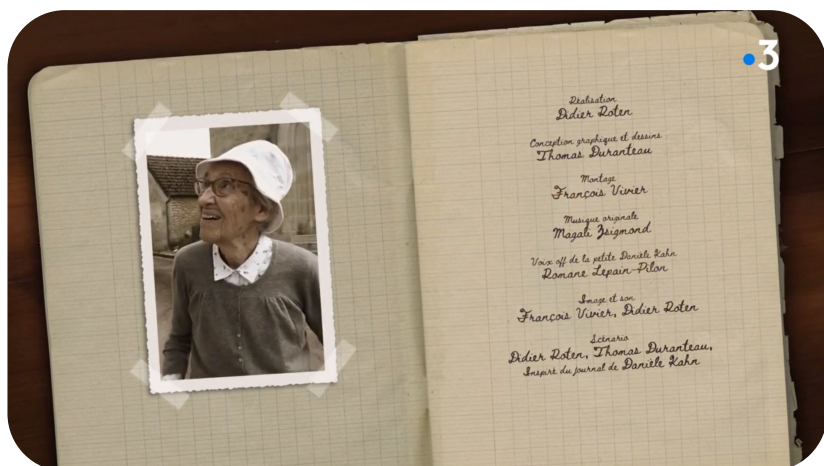 3
Réalisation
Didier Roten
Conception graphique et dessins
Thomas Duranteau
Montage
François Vivier
Musique originale
Magali Zsigmond
Voix off de la petite Danièle Kahn
Romane Lepain-Pilon
Image et son
François Vivier, Didier Roten
Scénario
Didier Roten, Thomas Duranteau,
Inspiré du journal de Danièle Kahn